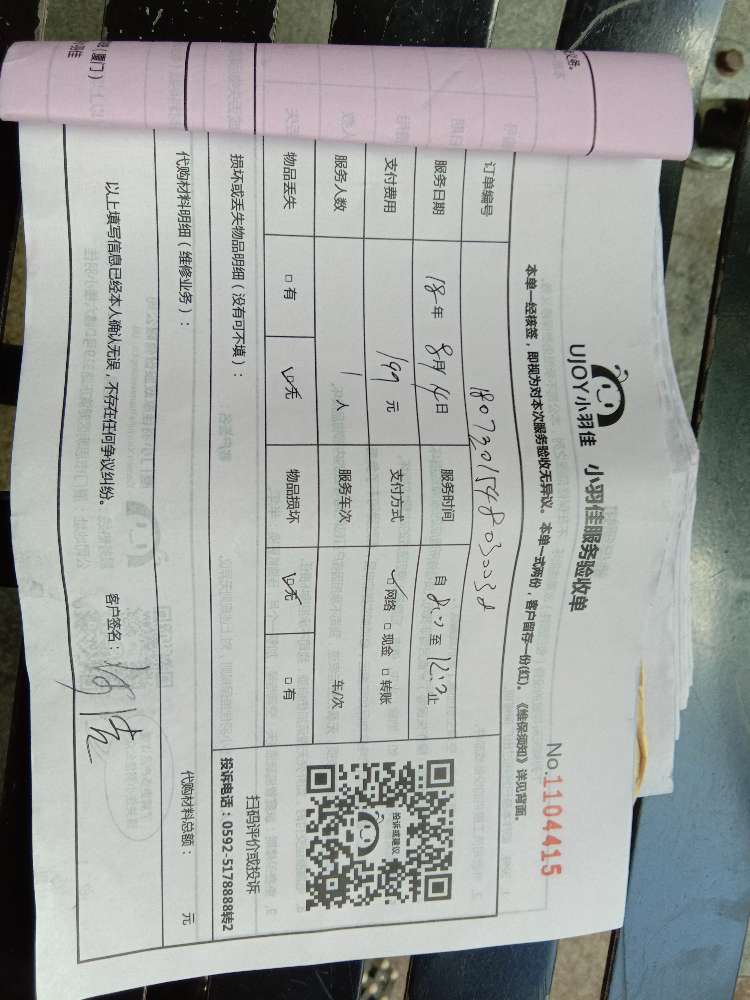 UJOY小羽佳 小羽佳服务验收单
No.1104415
本单一经接签，即视为对本次服务验收无异议。 本单一式两份，客户留存一份(红)。《维保须知》详见背面。
订单编号
服务日期 18年 8月14日 服务时间 自 8:00 至 12:00 止
支付费用 199 元 支付方式 ☑网络 □现金 □转账
服务人数 1 人 服务车次 车/次
物品丢失 □有 ☑无 物品损坏 ☑无 □有
损坏或丢失物品明细（没有可不填）：
投诉或建议
扫码评价或投诉
投诉电话：0592-5178888转2
代购材料明细（维修业务）： 代购材料总额： 元
以上填写信息已经本人确认无误，不存在任何争议纠纷。 客户签名：